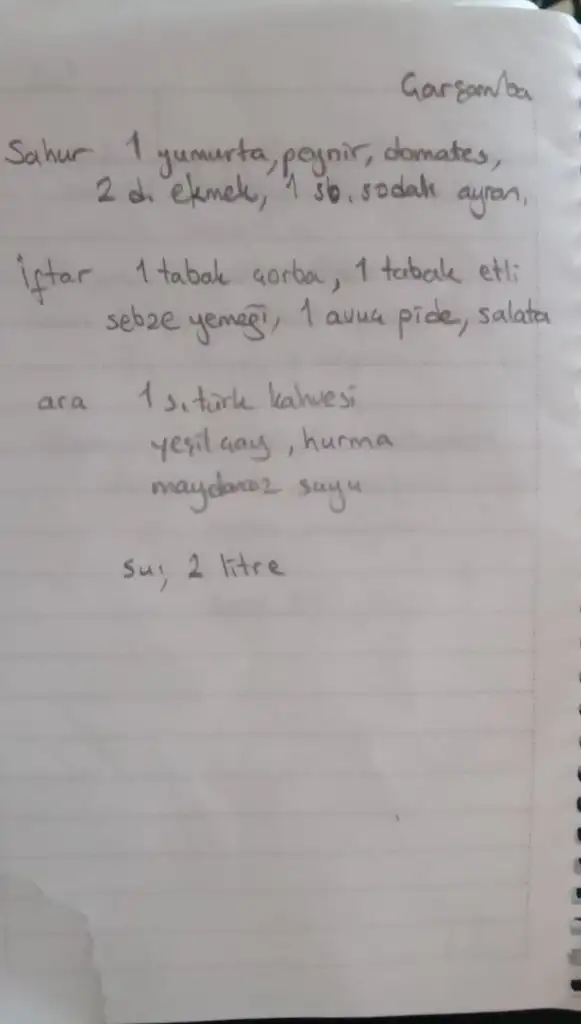 Çarşamba
Sahur 1 yumurta, peynir, domates,
2 d. ekmek, 1 sb. sodalı ayran,
İftar 1 tabak çorba, 1 tabak etli
sebze yemeği, 1 avuç pide, salata
ara 1 s. türk kahvesi
yeşil çay, hurma
maydanoz suyu
su; 2 litre